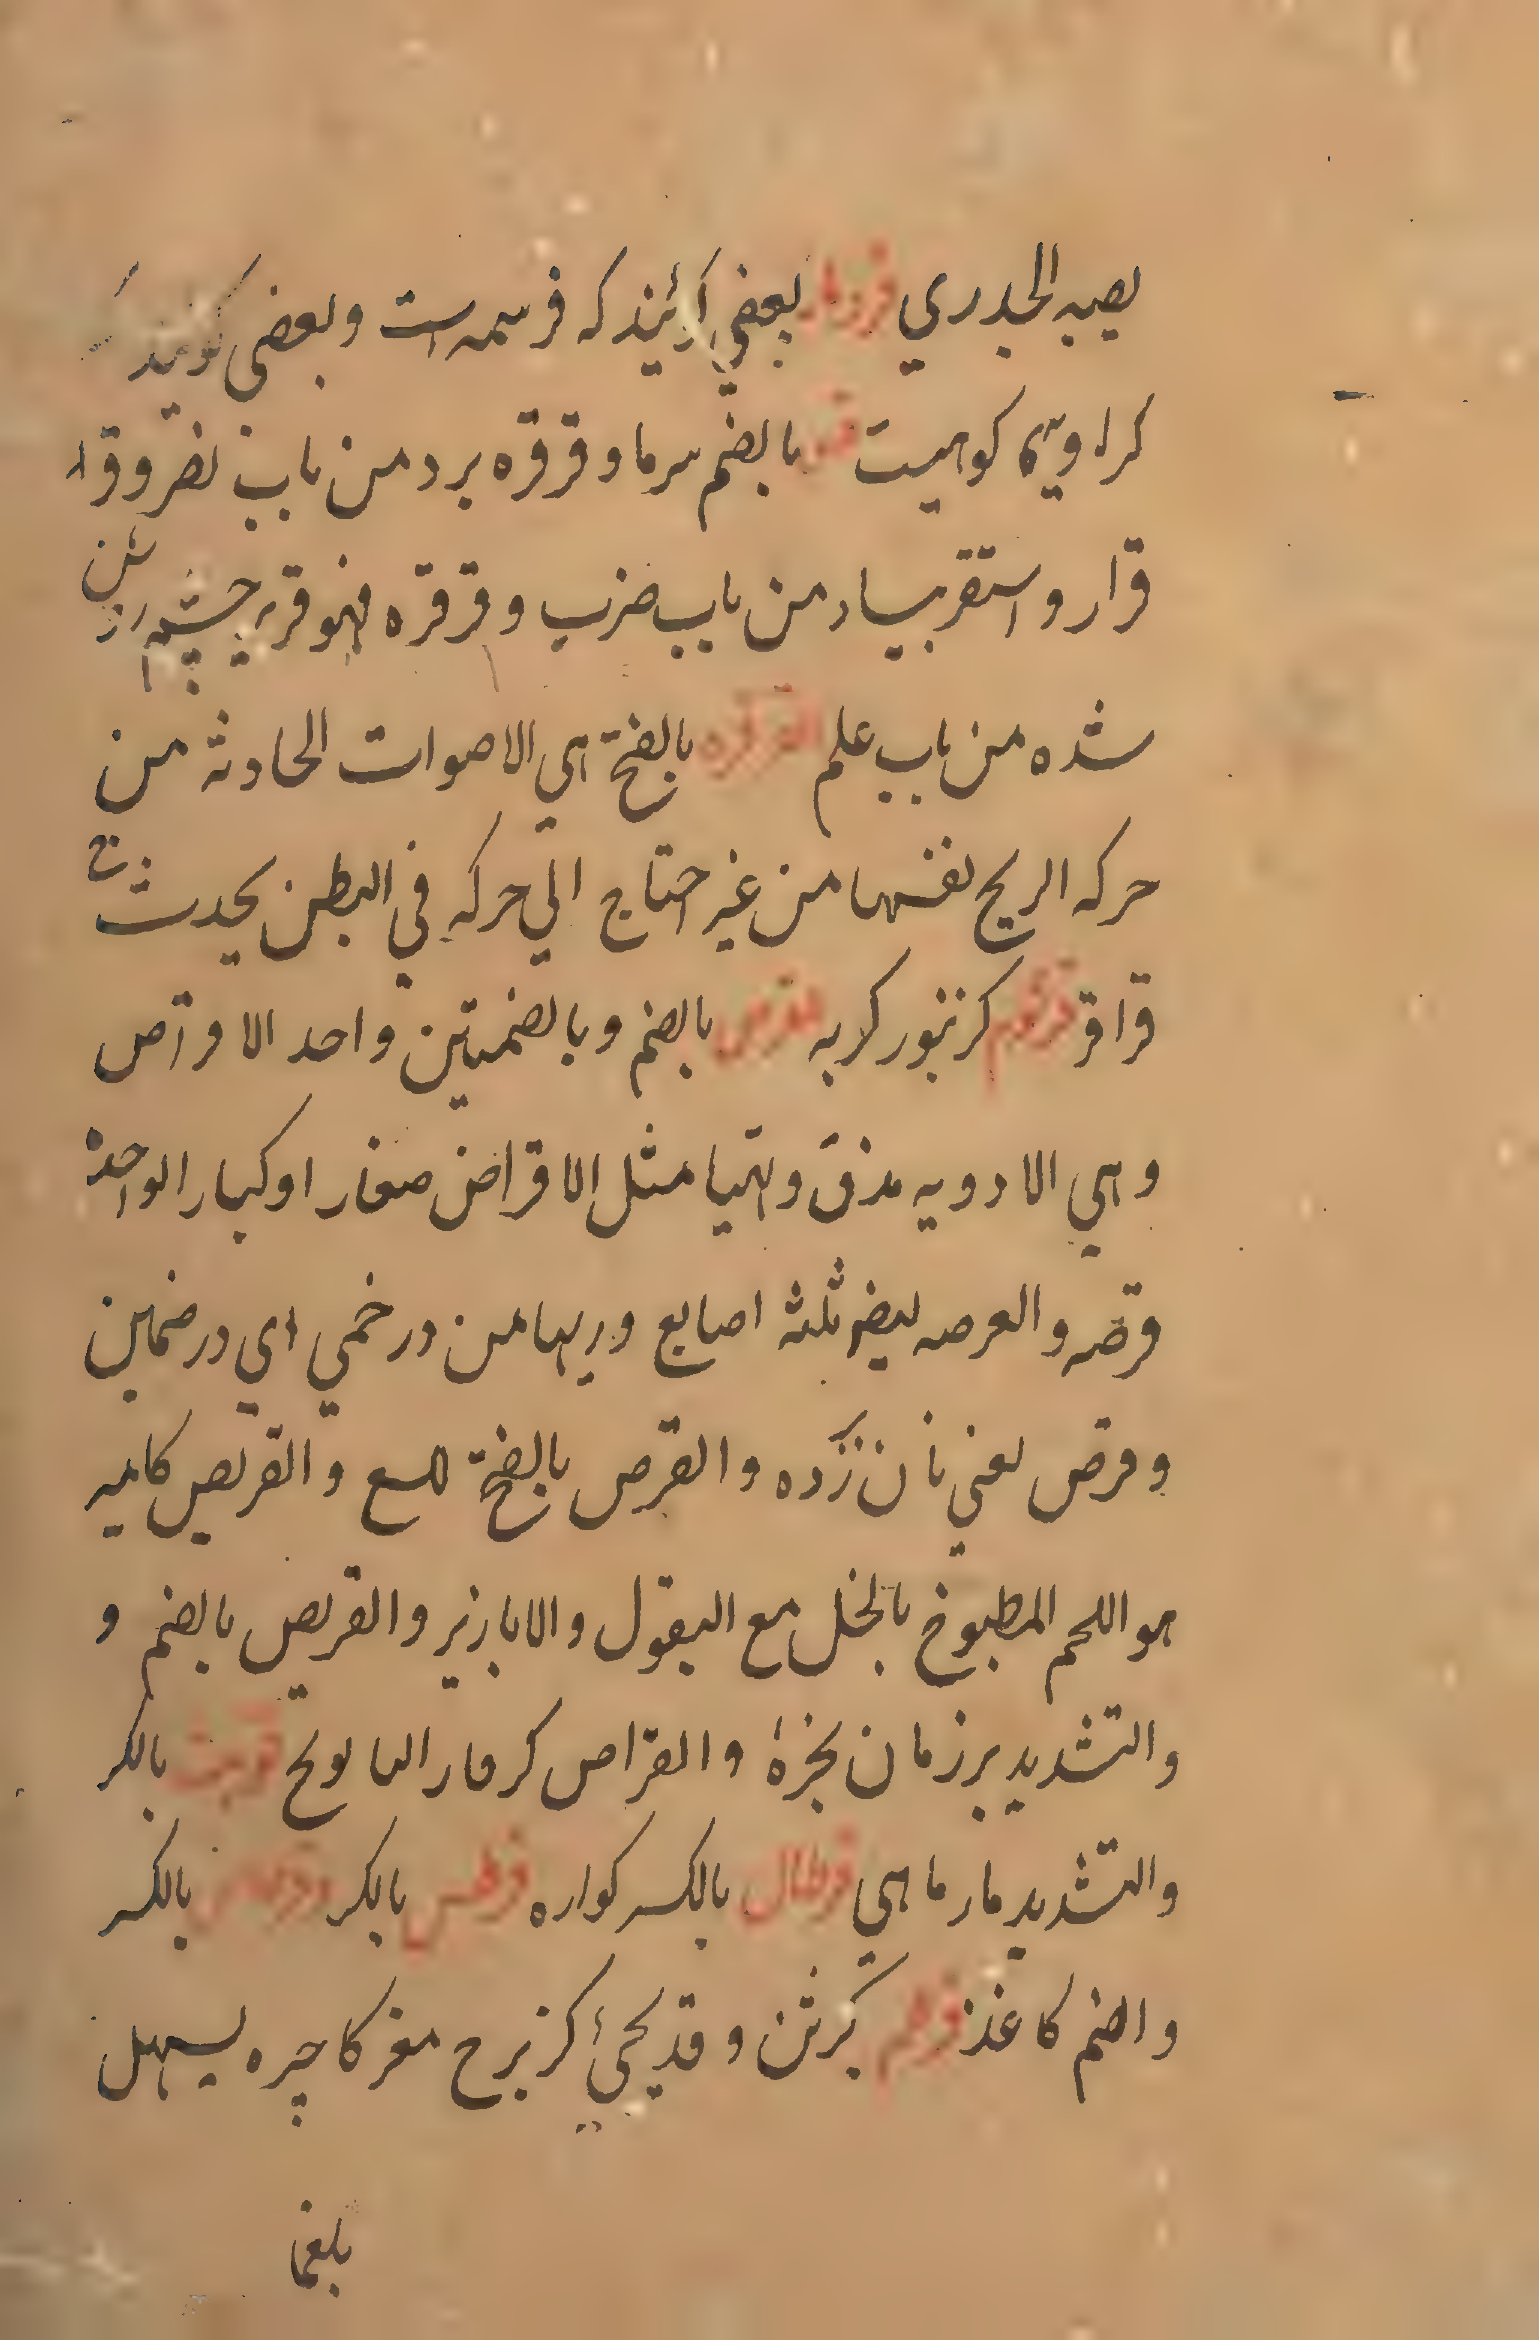 یصبه الجدري قردمانا بعضی برآنند که قرسمه است وبعضی کویند
کراویهٔ کوهیست قر بالضم سرما وقرقره برد من باب نصر وقرا
قرار واستقر بیساد من باب ضرب وقرقره فهو قریر چشم روشن
شده من باب علم القرقره بالفتح هي الاصوات الحادثه من
حرکه الریح نفسها من غیر احتیاج الي حرکه في البطن یحدث ج
قراقر قرشعم کزنبور کربه قرص بالضم وبالضمتین واحد الاقراص
وهي الادویه مدق وتهیا مثل الاقراص صغار او کبار الواحدة
قرصه والعرصه لیضر ثلثه اصابع وربها من درخمي الي درخمین
وقرص یعني نان زکرده والقرص بالفتح للسع والقریص کامیر
هو اللحم المطبوخ بالخل مع البقول والابازیر والقریص بالضم و
والتشدید برزمان بخزهٔ والقراص کرمار البابونج قریث بالکر
والتشدید مارماهي قرطال بالکسر کواره قرطس بالکر وقرطاس بالکسر
والضم کاغذ قرطم کبرثن وقد یجئ کزبرج مغز کاچره یسهل
بلغما